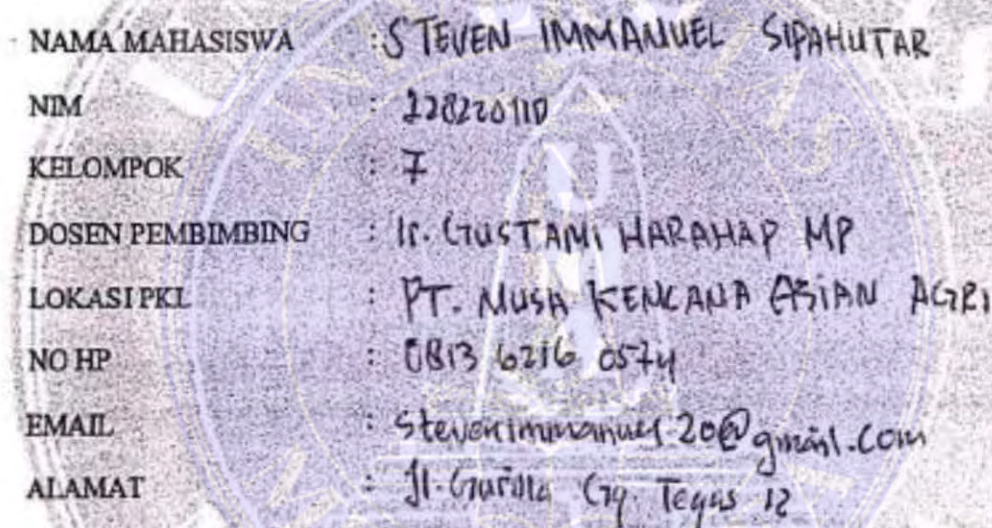 NAMA MAHASISWA : STEVEN IMMANUEL SIPAHUTAR
NIM : 228220110
KELOMPOK : 7
DOSEN PEMBIMBING : Ir. GUSTAMI HARAHAP MP
LOKASI PKL : PT. MUSA KENCANA ASIAN AGRI
NO HP : 0813 6216 0574
EMAIL : stevenimmanuel.20@gmail.com
ALAMAT : Jl. Gurilla Gg. Tegas 12